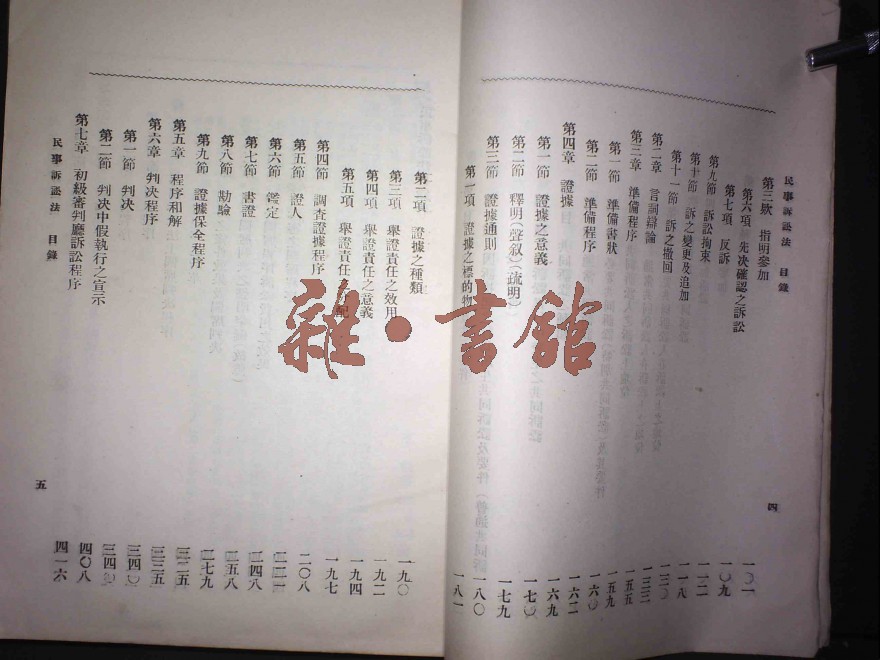 民事訴訟法 目錄
第三欵 指明參加
第六項 先決確認之訴訟
第七項 反訴
第九節 訴訟拘束
第十節 訴之變更及追加
第十一節 訴之撤回
第二章 言詞辯論
第三章 準備程序
第一節 準備書狀
第二節 準備程序
第四章 證據
第一節 證據之意義
第二節 釋明(聲叙)(疏明)
第三節 證據通則
第一項 證據之標的物
四
一〇一
一〇九
一一二
一一八
一三〇
一三三
一五五
一五九
一六〇
一六二
一六九
一七〇
一七九
一八〇
一八一
第二項 證據之種類
第三項 舉證責任之效用
第四項 舉證責任之意義
第五項 舉證責任
第四節 調查證據程序
第五節 證人
第六節 鑑定
第七節 書證
第八節 勘驗
第九節 證據保全程序
第五章 程序和解
第六章 判決程序
第一節 判決
第二節 判決中假執行之宣示
第七章 初級審判廳訴訟程序
民事訴訟法 目錄
五
一九〇
一九二
一九四
一九七
二〇八
二四八
二五八
二七九
三二五
三三五
三四〇
四〇八
四一六
雜·書館